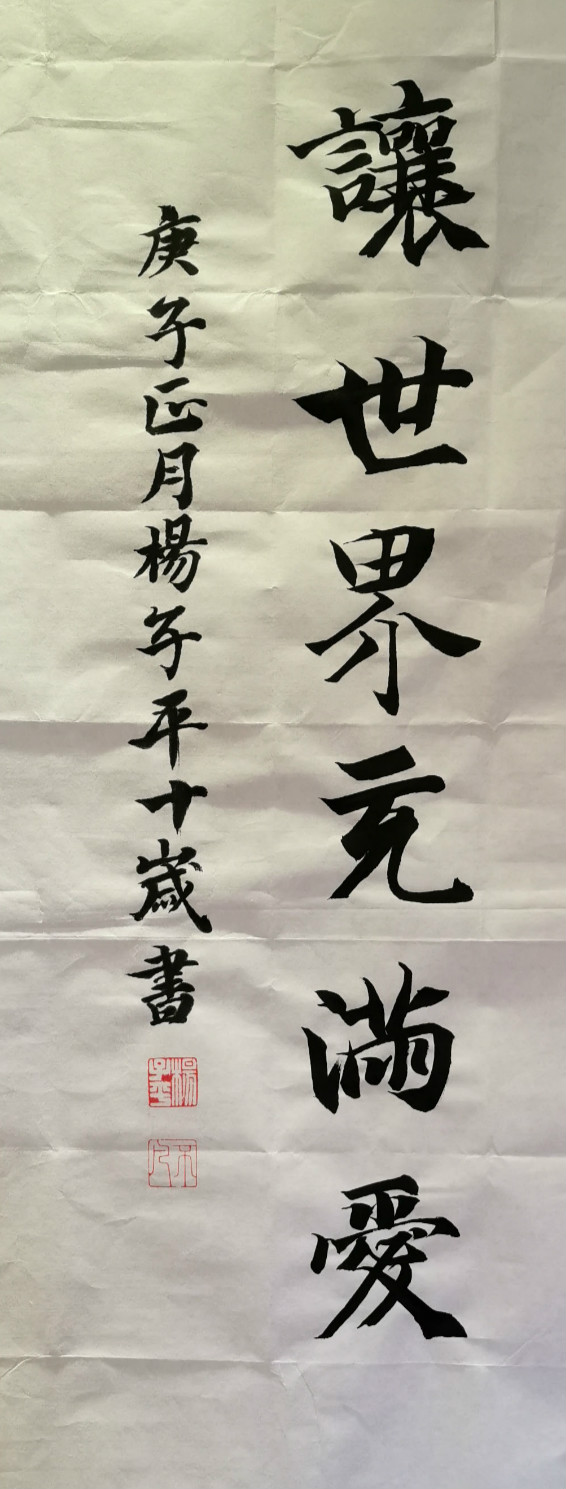 讓世界充滿愛
庚子正月楊子平十歲書
楊子平
不凡